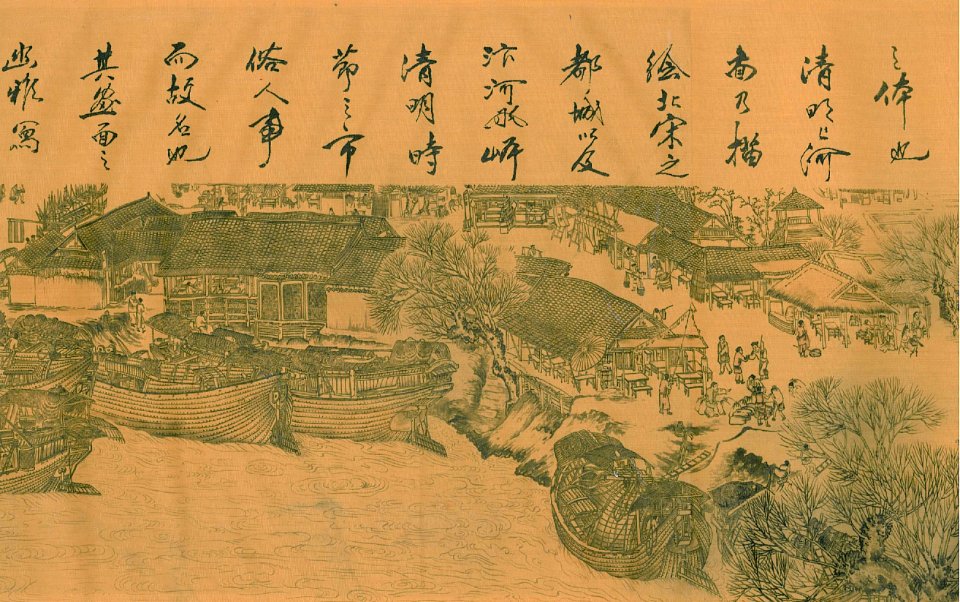 之体也
清明上河
图乃描
绘北宋之
都城以及
汴河两岸
清明时
节之市
俗人事
而故名也
其画面之
幽雅写